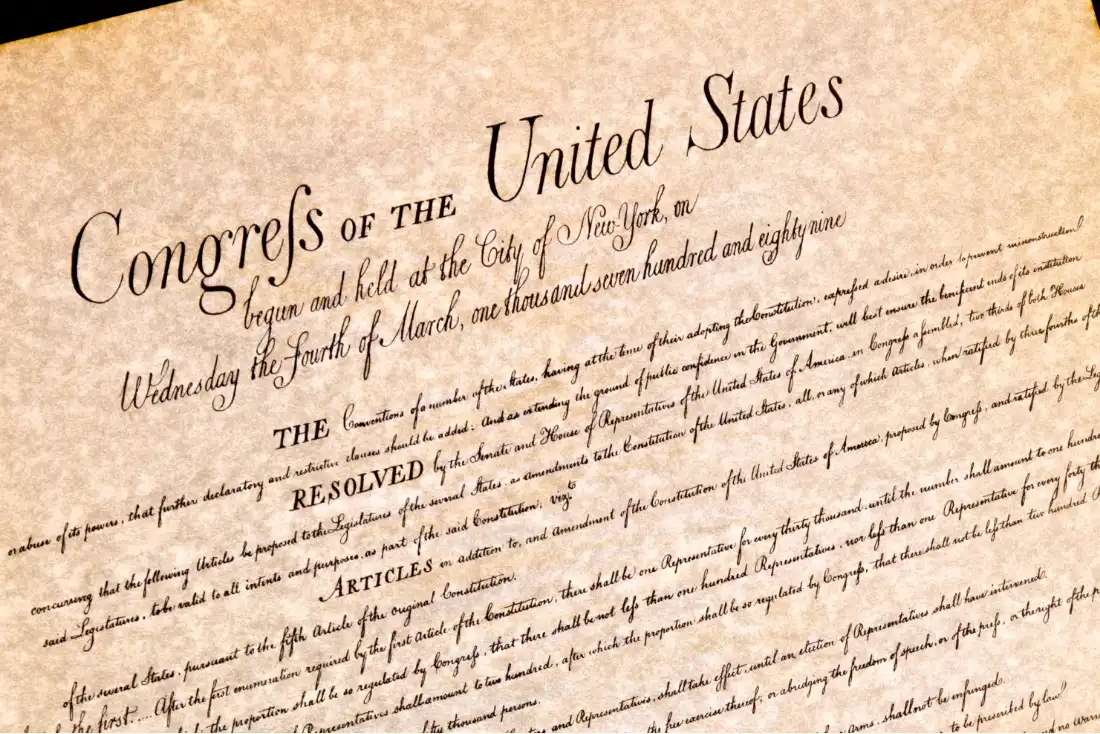 Congreſs OF THE United States
begun and held at the City of New-York, on
Wednesday the Fourth of March, one thousand seven hundred and eighty nine
THE Conventions of a number of the States, having at the time of their adopting the Constitution, expressed a desire, in order to prevent misconstruction
or abuse of its powers, that further declaratory and restrictive clauses should be added: And as extending the ground of public confidence in the Government, will best ensure the beneficent ends of its institution
RESOLVED by the Senate and House of Representatives of the United States of America, in Congreſs aſsembled, two thirds of both Houses
concurring that the following Articles be proposed to the Legislatures of the several States, as amendments to the Constitution of the United States, all, or any of which Articles, when ratified by three fourths of the
said Legislatures, to be valid to all intents and purposes, as part of the said Constitution; vizt
ARTICLES in addition to, and amendment of the Constitution of the United States of America, proposed by Congreſs, and ratified by the
of the several States, pursuant to the fifth Article of the original Constitution.
the first.... After the first enumeration required by the first Article of the Constitution, there shall be one Representative for every thirty thousand, until the number shall amount to one
the proportion shall be so regulated by Congreſs, that there shall be not leſs than one hundred Representatives, nor leſs than one Representative for every forty
Representatives shall amount to two hundred, after which the proportion shall be so regulated by Congreſs, that there shall not be leſs than two hundred
thousand persons.
and Representatives, shall take effect, until an election of Representatives shall have intervened.
the free exercise thereof, or abridging the freedom of speech, or of the preſs, or the right of the
arms, shall not be infringed.
to be prescribed by law.
and no